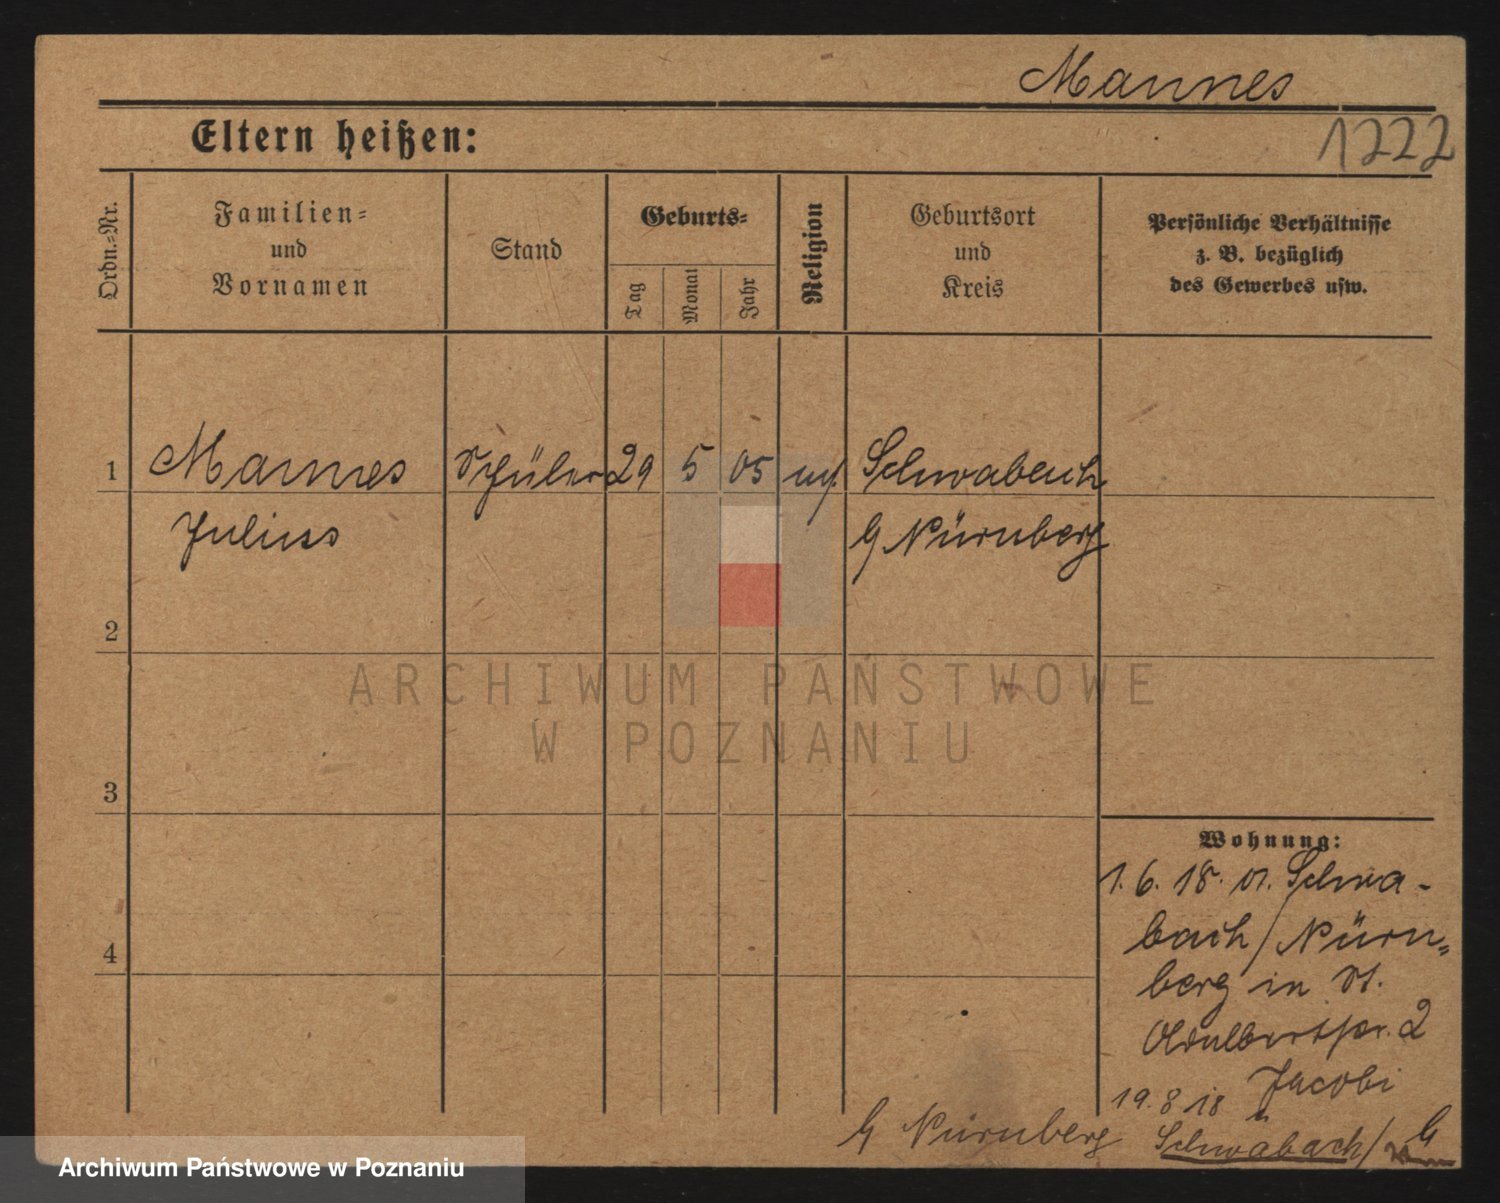 Mannes
Eltern heißen:
1222
Ordn.=Nr.
Familien=
und
Vornamen
Stand
Geburts=
Tag
Monat
Jahr
Religion
Geburtsort
und
Kreis
Persönliche Verhältnisse
z. B. bezüglich
des Gewerbes usw.
1 Mannes Schüler 29 5 05 Schwabach
Julius Nürnberg
2
3
4
Wohnung:
1. 6. 18. v. Schwa-
bach / Nürn=
berg in St.
Adalbertstr. 2
Jacobi
19. 8. 18
Nürnberg Schwabach /
ARCHIWUM PAŃSTWOWE
W POZNANIU
Archiwum Państwowe w Poznaniu